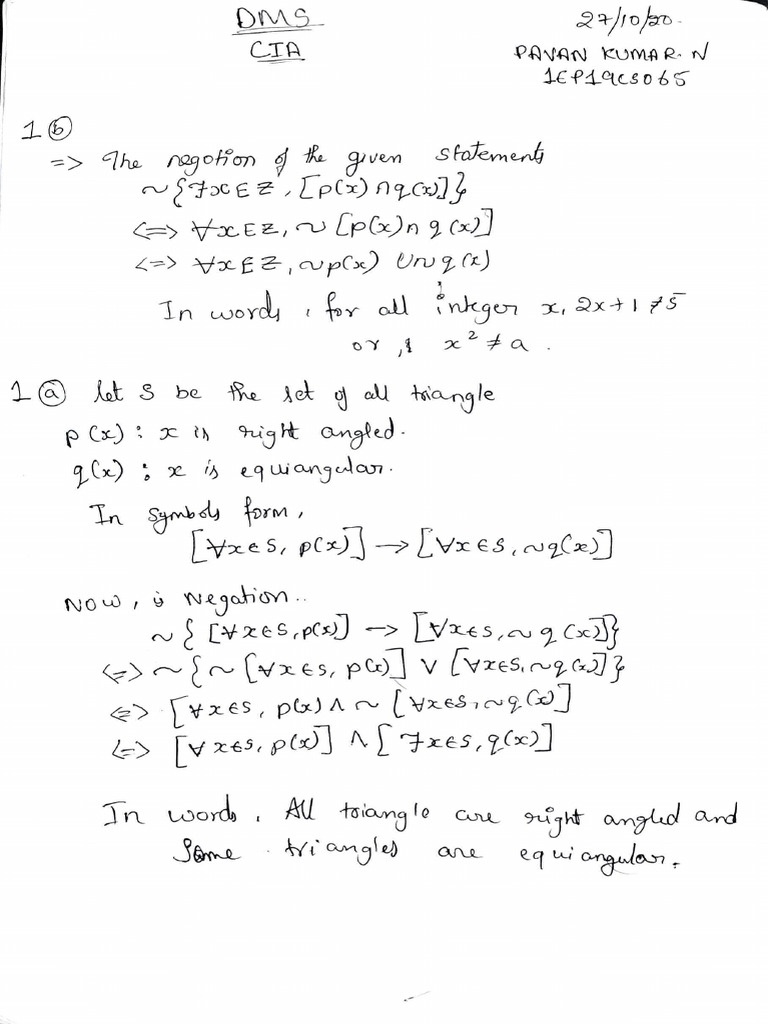 DMS
CIA
27/10/20.
PAVAN KUMAR. N
1EP19CS065
1 ⓑ
=> The negotion of the given statements
~{∃x∈Z, [p(x)∩q(x)]}
<=> ∀x∈Z, ~[p(x)∩ q(x)]
<=> ∀x∈Z, ~p(x) ∪~q(x)
In words, for all integer x, 2x+1≠5
or, x² ≠ a.
1 ⓐ let S be the set of all triangle
p(x): x is right angled.
q(x): x is equiangular.
In symbols form,
[∀x∈S, p(x)] → [∀x∈S, ~q(x)]
Now, is Negation..
~{[∀x∈S, p(x)] → [∀x∈S, ~q(x)]}
<=> ~{~[∀x∈S, p(x)] ∨ [∀x∈S, ~q(x)]}
<=> [∀x∈S, p(x) ∧ ~ [∀x∈S, ~q(x)]
<=> [∀x∈S, p(x)] ∧ [∃x∈S, q(x)]
In words, All triangle are right angled and
Some triangles are equiangular.